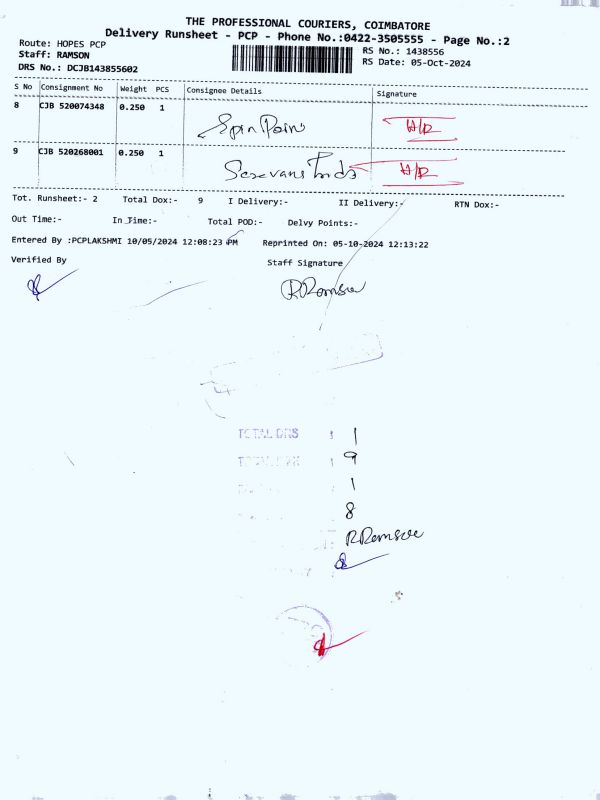 THE PROFESSIONAL COURIERS, COIMBATORE
Delivery Runsheet - PCP - Phone No.:0422-3505555 - Page No.:2
Route: HOPES PCP RS No.: 1438556
Staff: RAMSON RS Date: 05-Oct-2024
DRS No.: DCJB143855602
S No Consignment No Weight PCS Consignee Details Signature
8 CJB 520074348 0.250 1 H/R
9 CJB 520268001 0.250 1 H/R
Tot. Runsheet:- 2 Total Dox:- 9 I Delivery:- II Delivery:- RTN Dox:-
Out Time:- In Time:- Total POD:- Delvy Points:-
Entered By :PCPLAKSHMI 10/05/2024 12:08:23 PM Reprinted On: 05-10-2024 12:13:22
Verified By Staff Signature
TOTAL DRS : 1
9
1
8